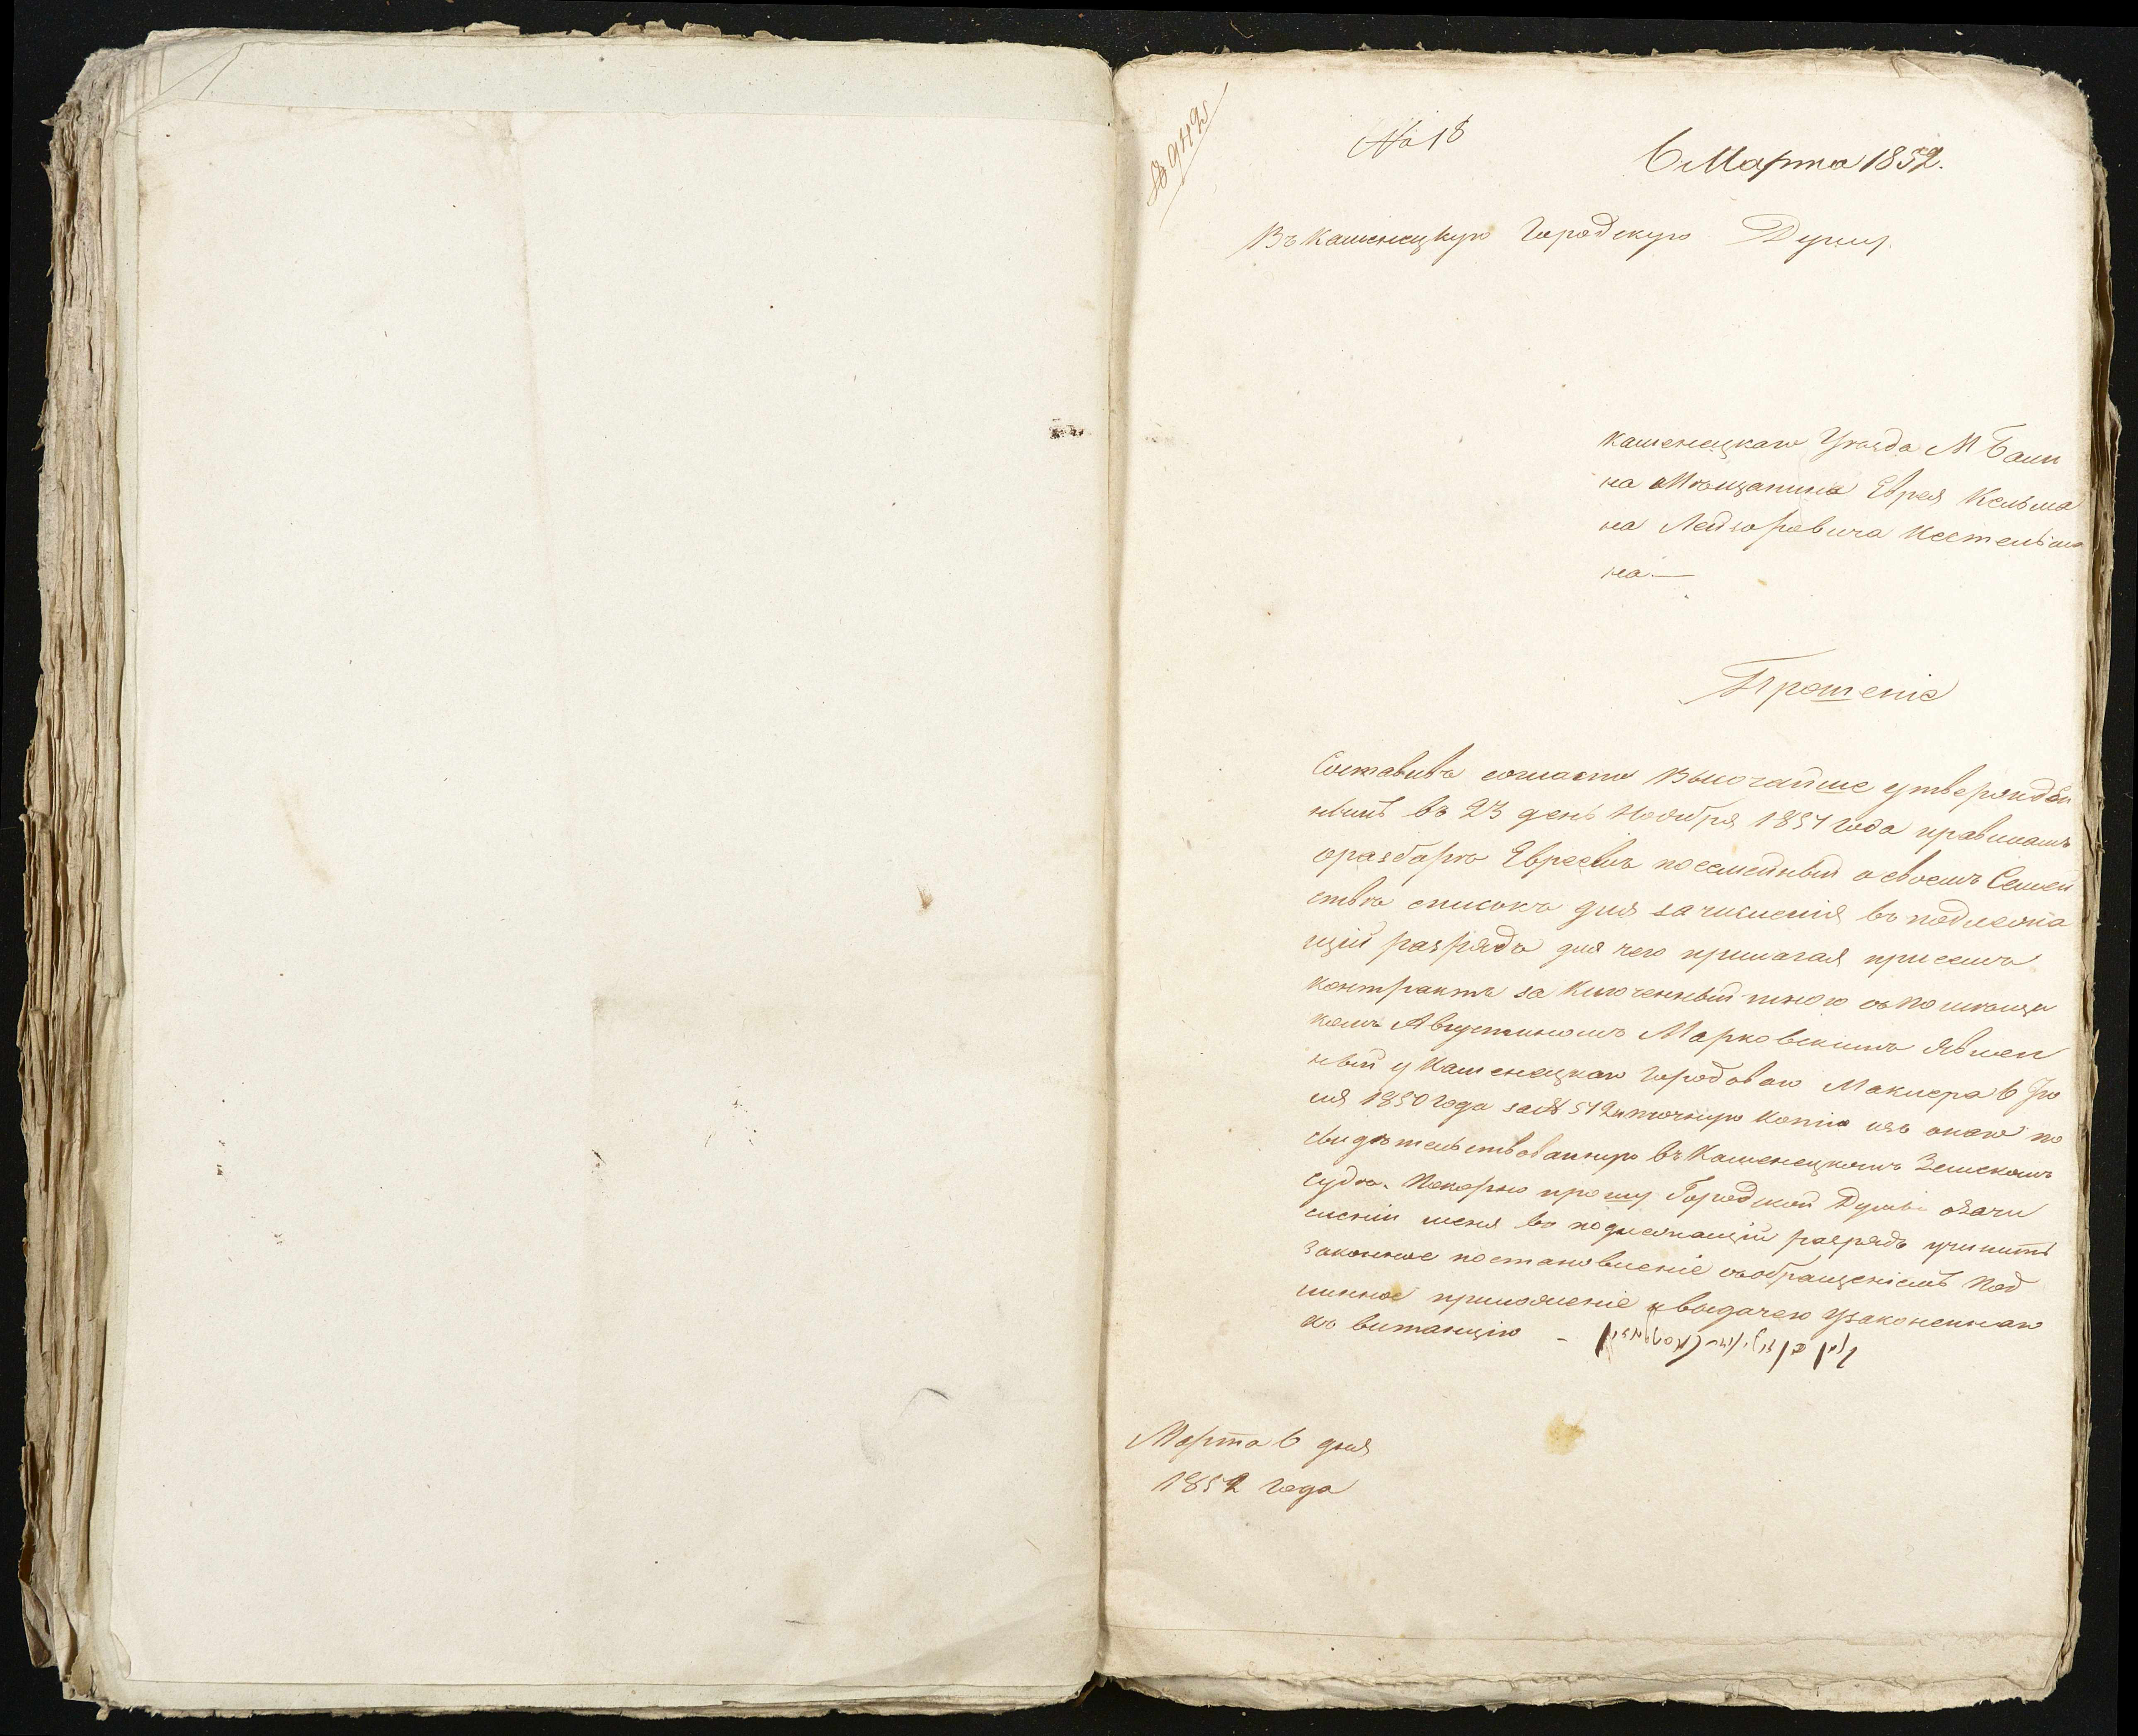 № 18
6 Марта 1852.
Въ Каменецкую Городскую Думу.
Каменецкаго Уѣзда М Балы
на Мѣщанина Еврея Кельма
на Лейзоровича Кестельма
на —
Прошеніе
Составивъ согласно Высочайше утвержден
нымъ въ 23 день Ноября 1851 года правиламъ
о разборѣ Евреевъ посемейный о своемъ Семей
ствѣ списокъ для зачисленія въ подлежа
щій разрядъ для чего прилагая при семъ
контрактъ заключенный мною съ помѣщи
комъ Августиномъ Марковскимъ явлен
ный у Каменецкаго Городоваго Маклера 6 Ію
ля 1850 года за № 512 и точную копію изъ онаго по
свидѣтельствованную въ Каменецкомъ Земскомъ
Судѣ. Покорно прошу Городской Думы о зачи
сленіи меня въ подлежащій разрядъ учинить
законное постановленіе съ обращеніемъ под
линное приложеніе и выдачею узаконеннаго
квитанцію —
Марта 6 дня
1852 года